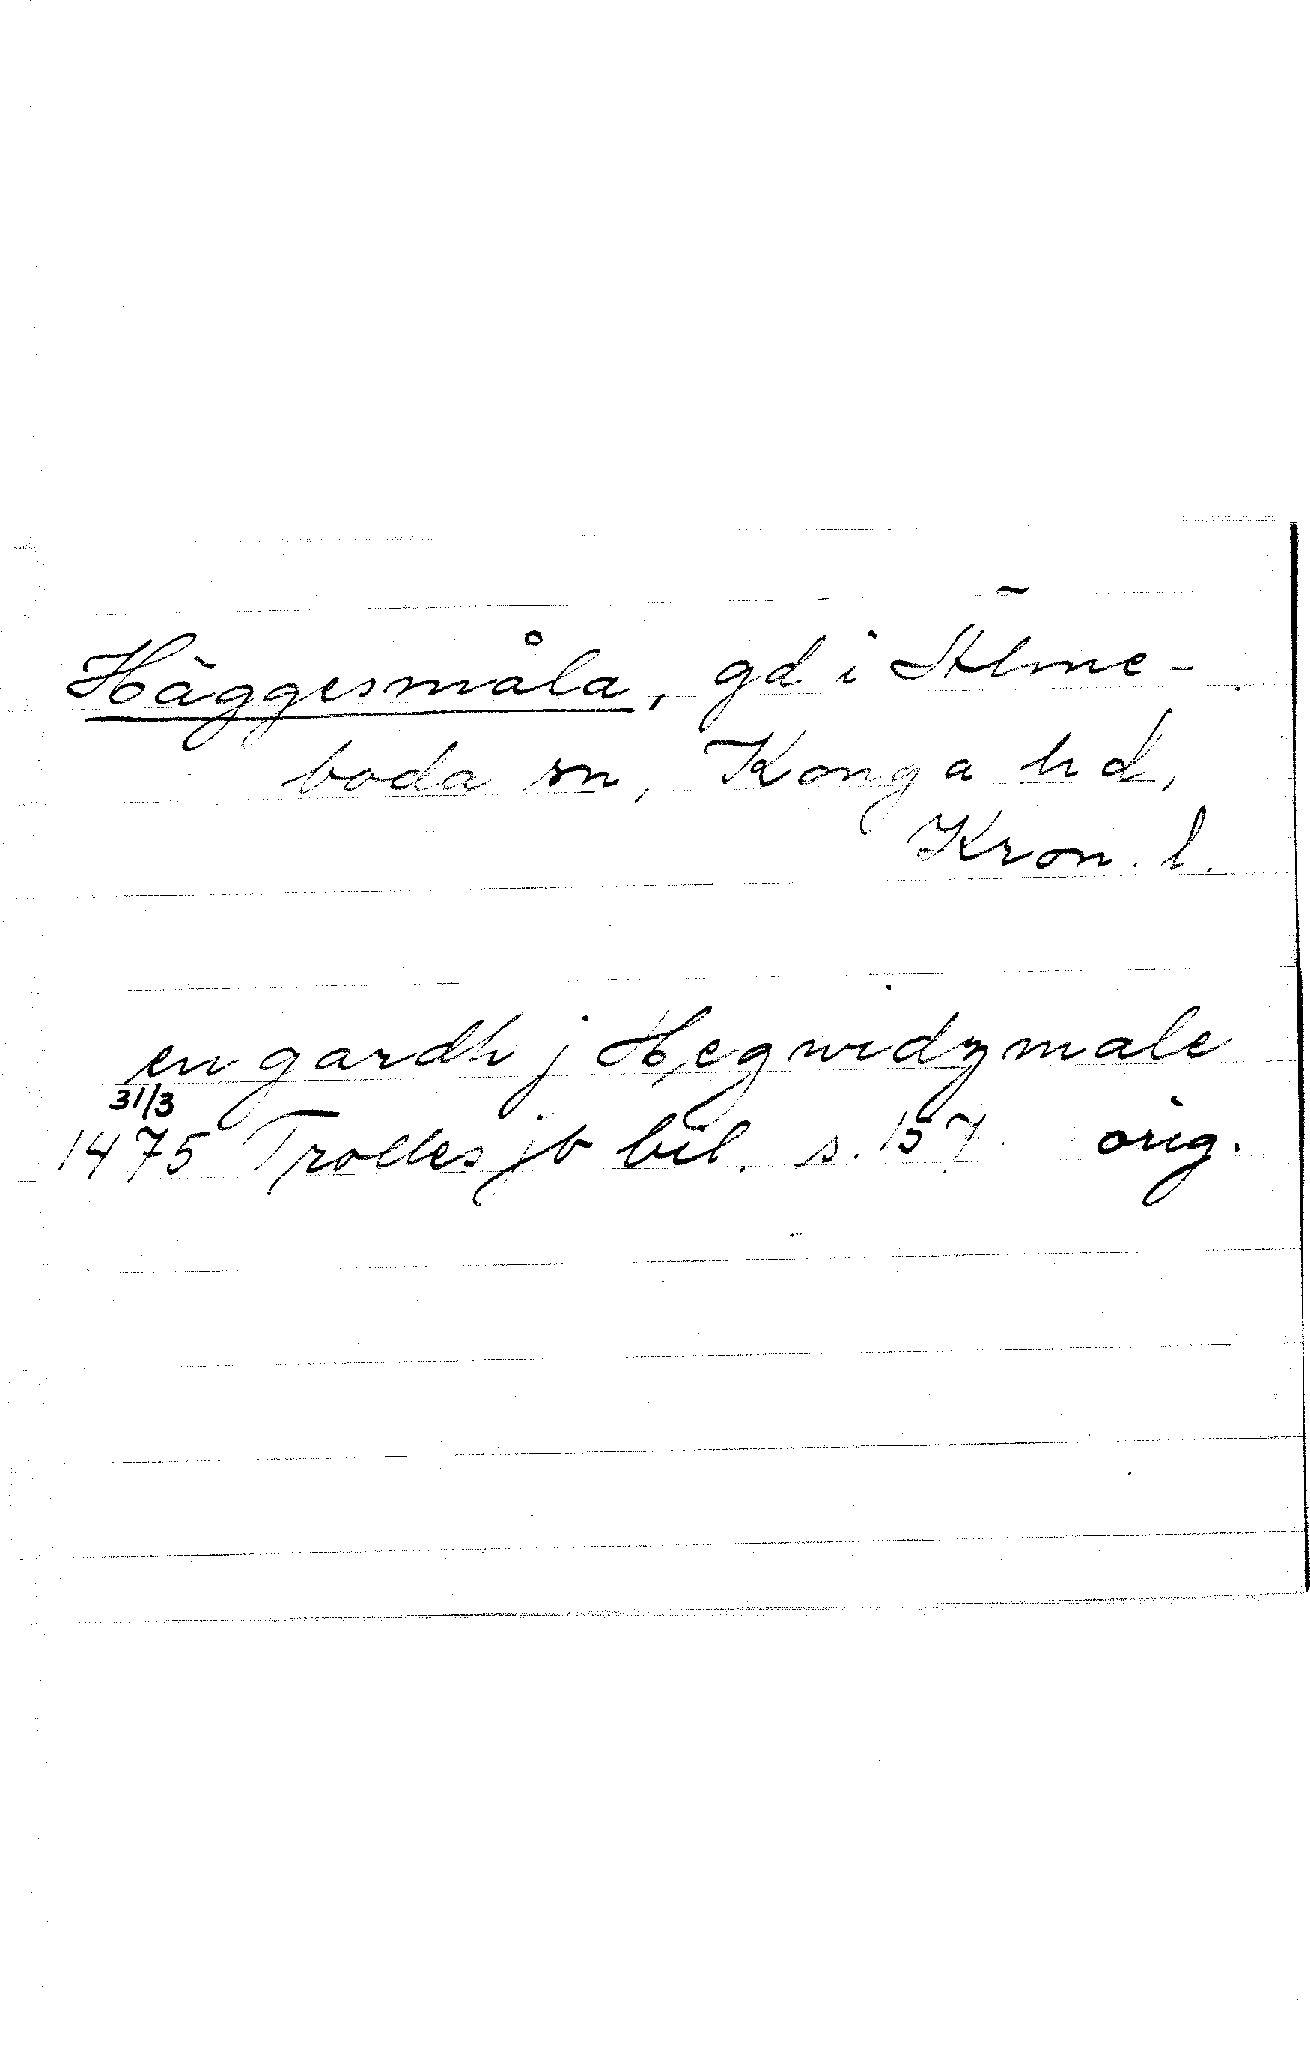 Häggesmåla, gd i Älme-
boda sn, Konga hd,
Kron. l.
en gardh j Hegwidzmale
31/3
1475 Trolles jb bil. s. 157. orig.